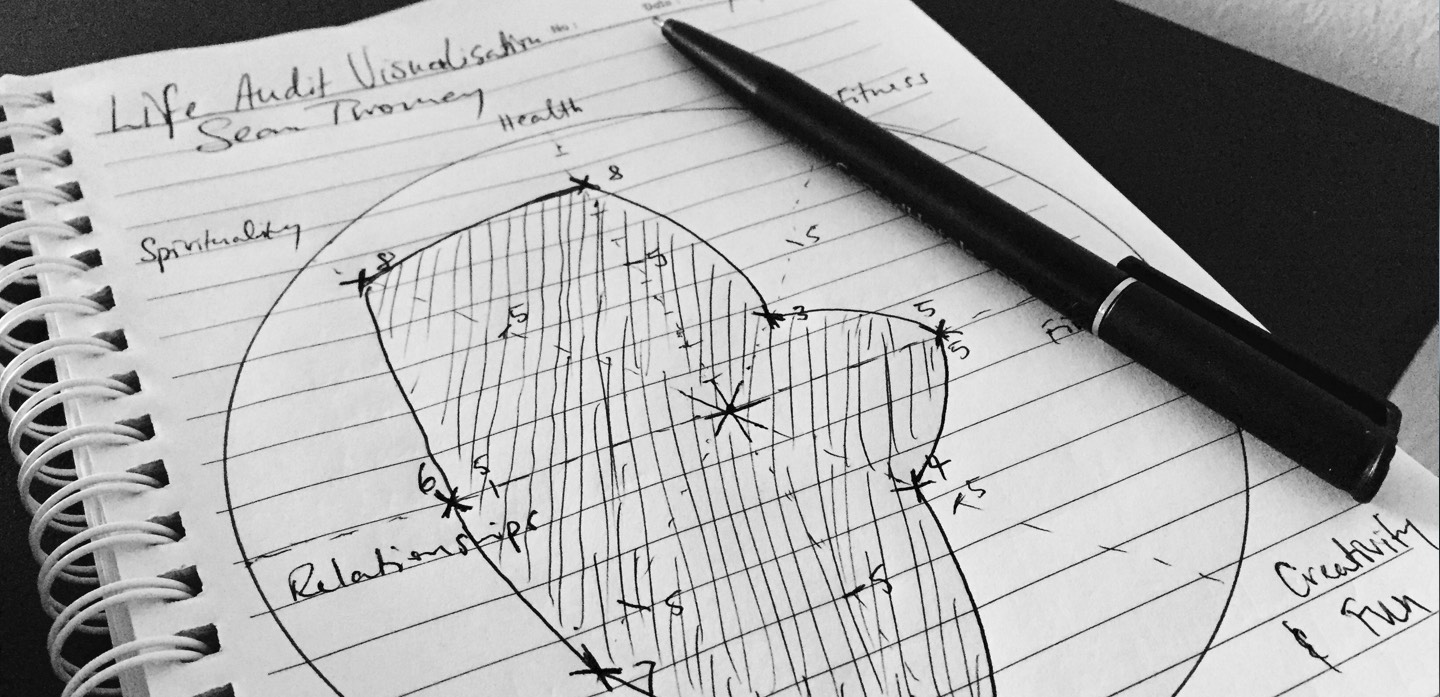 No:
Date:
Life Audit Visualisation
Sean Twomey
Health
Fitness
8
Spirituality
8
5
5
5
3
5
5
Fi
6
5
4
5
Relationships
5
5
7
Creativity
& Fun